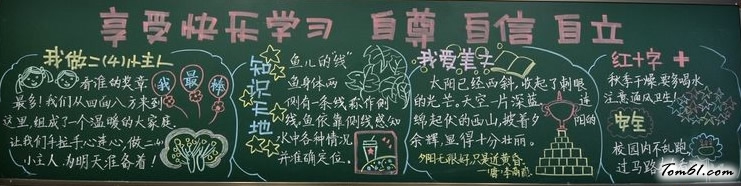 享受快乐学习 自尊 自信 自立
我做二(4)小主人
看谁的奖章
最多!我们从四面八方来到
这里,组成了一个温暖的大家庭
让我们手拉手心连心,做二(4)
小主人,为明天准备着!
我最棒
知识天地
鱼儿的"线"
鱼身体两
侧有条线,称作侧
线,鱼依靠侧线感知
水中各种情况,
并准确定位。
我爱美文
太阳已经西斜,收起了刺眼
的光芒。天空一片深蓝,连
绵起伏的西山,披着夕阳的
余辉,显得十分壮丽。
夕阳无限好,只是近黄昏。
—唐·李商隐
红十字
秋季干燥要多喝水
注意通风卫生!
安全
校园内不乱跑
过马路
Tom61.com